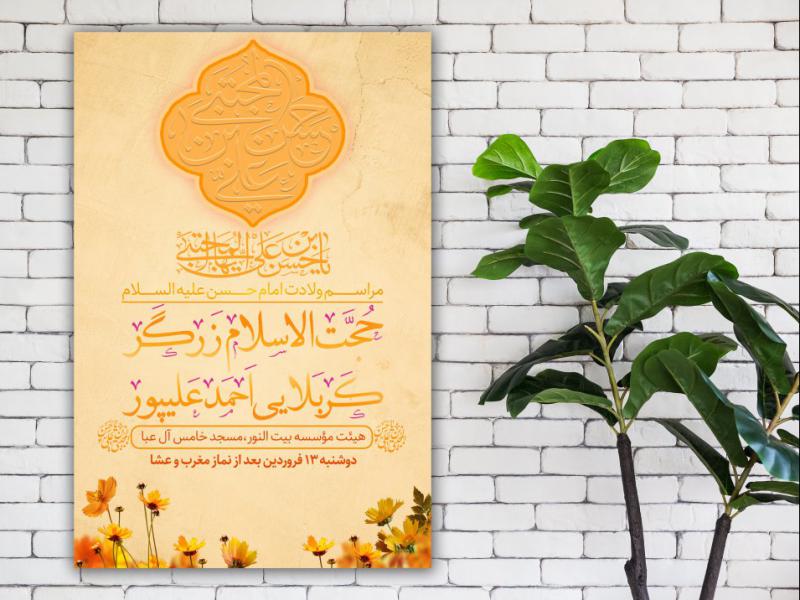 حسن بن علی المجتبی
یا حسن بن علی ایها المجتبی
مراسم ولادت امام حسن علیه السلام
حُجَّت الاسلام زَرگَر
کَربَلایی اَحمَد عَلیپور
هیئت مؤسسه بیت النور،مسجد خامس آل عبا
دوشنبه ۱۳ فروردین بعد از نماز مغرب و عشا